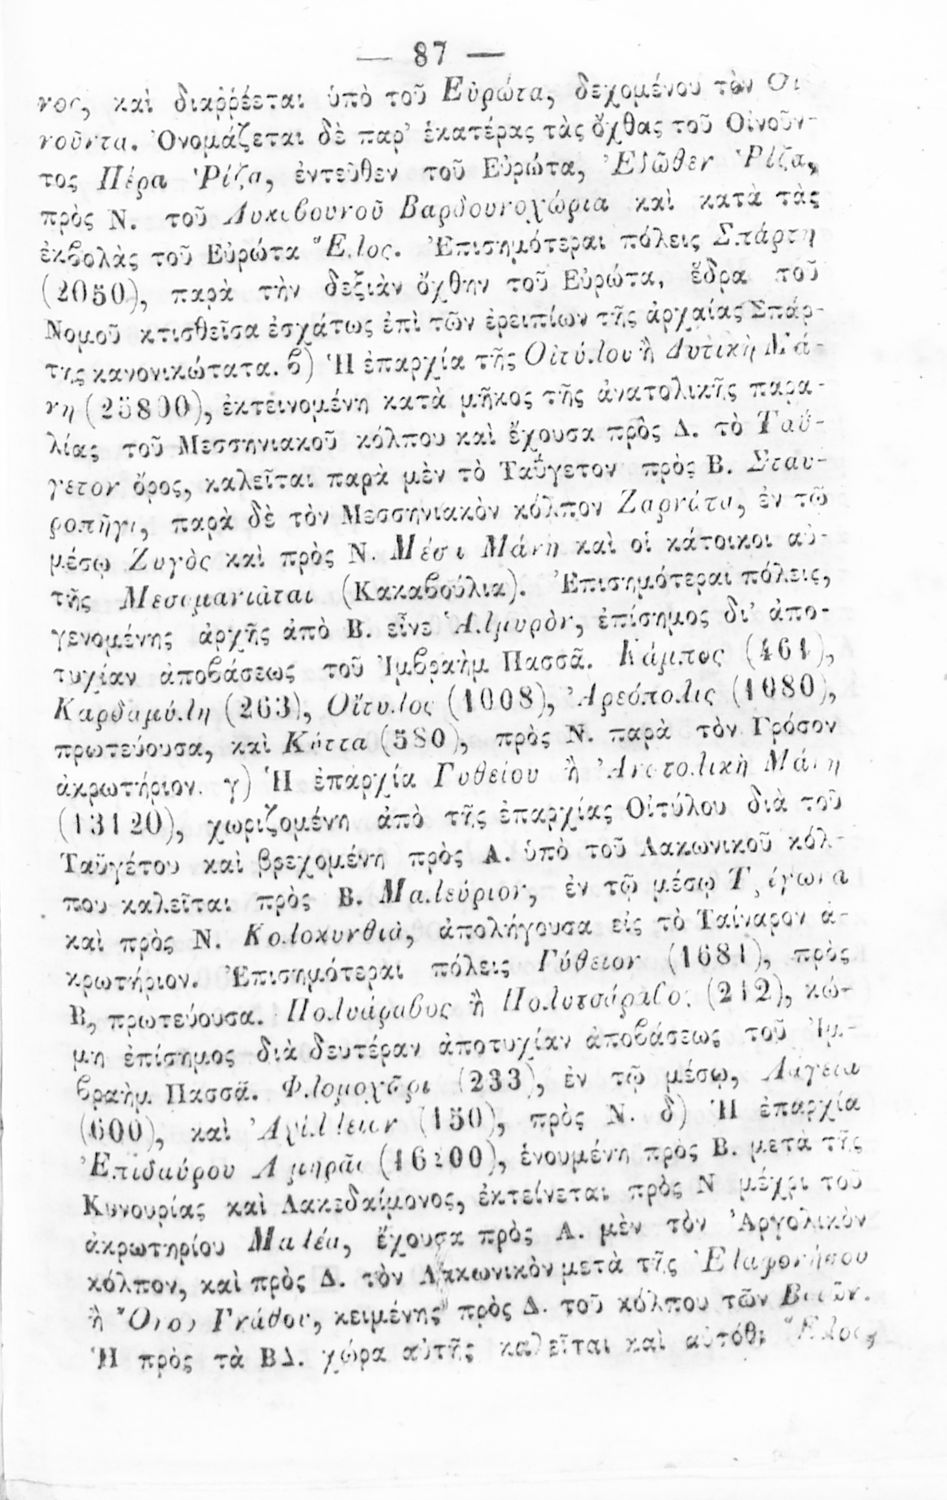 — 87 —
νος, καὶ διαῤῥέεται ὑπὸ τοῦ Εὐρώτα, δεχομένου τὸν Οἰ-
νοῦντα. Ὀνομάζεται δὲ παρ’ ἑκατέρας τὰς ὄχθας τοῦ Οἰνοῦν-
τος Πέρα Ῥίζα, ἐντεῦθεν τοῦ Εὐρώτα, Ἐδῶθεν Ῥίζα,
πρὸς Ν. τοῦ Λυκοβουνοῦ Βαρδουνοχώρια καὶ κατὰ τὰς
ἐκβολὰς τοῦ Εὐρώτα Ἕλος. Ἐπισημότεραι πόλεις Σπάρτη
(2050), παρὰ τὴν δεξιὰν ὄχθην τοῦ Εὐρώτα, ἕδρα τοῦ
Νομοῦ κτισθεῖσα ἐσχάτως ἐπὶ τῶν ἐρειπίων τῆς ἀρχαίας Σπάρ-
της κανονικώτατα. β) Ἡ ἐπαρχία τῆς Οἰτύλου ἢ Δυτικὴ Μά-
νη (25800), ἐκτεινομένη κατὰ μῆκος τῆς ἀνατολικῆς παρα-
λίας τοῦ Μεσσηνιακοῦ κόλπου καὶ ἔχουσα πρὸς Δ. τὸ Ταΰ-
γετον ὄρος, καλεῖται παρὰ μὲν τὸ Ταΰγετον πρὸς Β. Σταυ-
ροπῆγι, παρὰ δὲ τὸν Μεσσηνιακὸν κόλπον Ζαρνάτα, ἐν τῷ
μέσῳ Ζυγὸς καὶ πρὸς Ν. Μέσα Μάνη καὶ οἱ κάτοικοι αὐ-
τῆς Μεσομανιᾶται (Κακαβούλια). Ἐπισημότεραι πόλεις,
γενομένης ἀρχῆς ἀπὸ Β. εἶνε Ἁλμυρὸν, ἐπίσημος δι’ ἀπο-
τυχίαν ἀποβάσεως τοῦ Ἰμβραὴμ Πασσᾶ. Κάμπος (464),
Καρδαμύλη (263), Οἴτυλος (1008), Ἀρεόπολις (1080),
πρωτεύουσα, καὶ Κήττα (580), πρὸς Ν. παρὰ τὸν Γρόσον
ἀκρωτήριον. γ) Ἡ ἐπαρχία Γυθείου ἢ Ἀνατολικὴ Μάνη
(13120), χωριζομένη ἀπὸ τῆς ἐπαρχίας Οἰτύλου διὰ τοῦ
Ταϋγέτου καὶ βρεχομένη πρὸς Α. ὑπὸ τοῦ Λακωνικοῦ κόλ-
που καλεῖται πρὸς Β. Μαλεύριον, ἐν τῷ μέσῳ Τρίγωνα
καὶ πρὸς Ν. Κολοκυνθιὰ, ἀπολήγουσα εἰς τὸ Ταίναρον ἀ-
κρωτήριον. Ἐπισημότεραι πόλεις Γύθειον (1681), πρὸς
Β, πρωτεύουσα. Πολυάραβος ἢ (212), κώ-
μη ἐπίσημος διὰ δευτέραν ἀποτυχίαν ἀποβάσεως τοῦ Ἰμ-
βραὴμ Πασσᾶ. Φλομοχῶρι (233), ἐν τῷ μέσῳ, Λάγεια
(600), καὶ Ἀχίλλειον (150), πρὸς Ν. δ) Ἡ ἐπαρχία
Ἐπιδαύρου Λιμηρᾶς (16200), ἑνουμένη πρὸς Β. μετὰ τῆς
Κυνουρίας καὶ Λακεδαίμονος, ἐκτείνεται πρὸς Ν μέχρι τοῦ
ἀκρωτηρίου Μαλέα, ἔχουσα πρὸς Α. μὲν τὸν Ἀργολικὸν
κόλπον, καὶ πρὸς Δ. τὸν Λακωνικὸν μετὰ τῆς Ἐλαφονήσου
ἢ Ὄνου Γνάθον, κειμένης πρὸς Δ. τοῦ κόλπου τῶν Βοιῶν.
Ἡ πρὸς τὰ ΒΔ. χώρα αὐτῆς καλεῖται καὶ αὐτόθι Ἕλος,